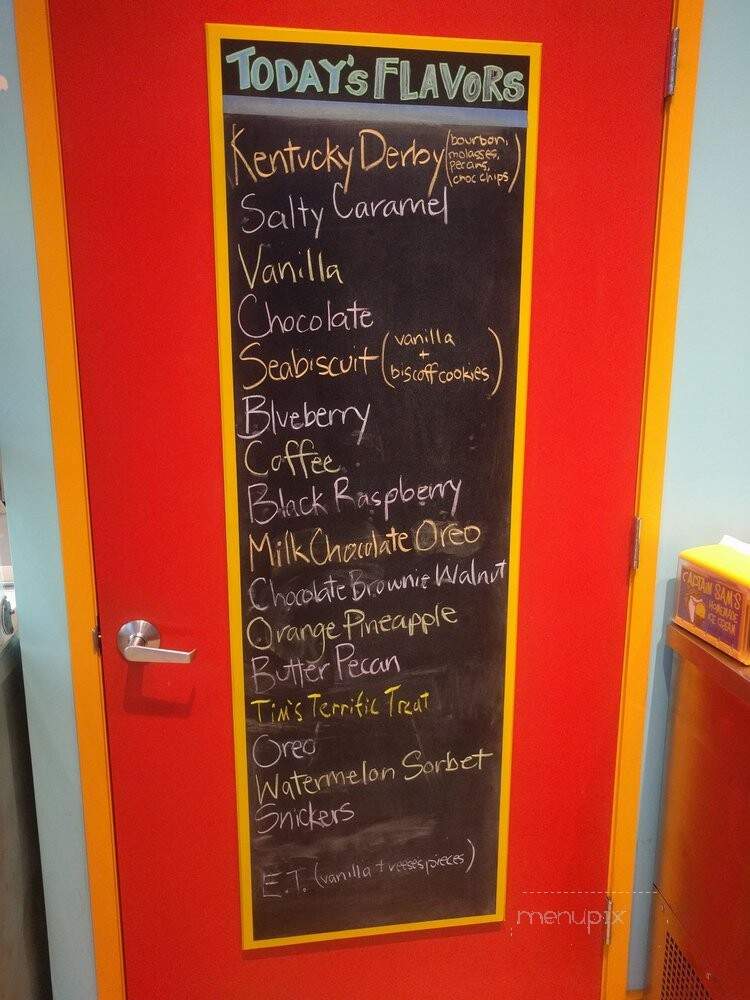 TODAY'S FLAVORS
Kentucky Derby (bourbon, molasses, pecans, choc chips)
Salty Caramel
Vanilla
Chocolate
Seabiscuit (vanilla + biscoff cookies)
Blueberry
Coffee
Black Raspberry
Milk Chocolate Oreo
Chocolate Brownie Walnut
Orange Pineapple
Butter Pecan
Tim's Terrific Treat
Oreo
Watermelon Sorbet
Snickers
E.T. (vanilla + reese's pieces)
CAPTAIN SAM'S
HOMEMADE
ICE CREAM
menupix